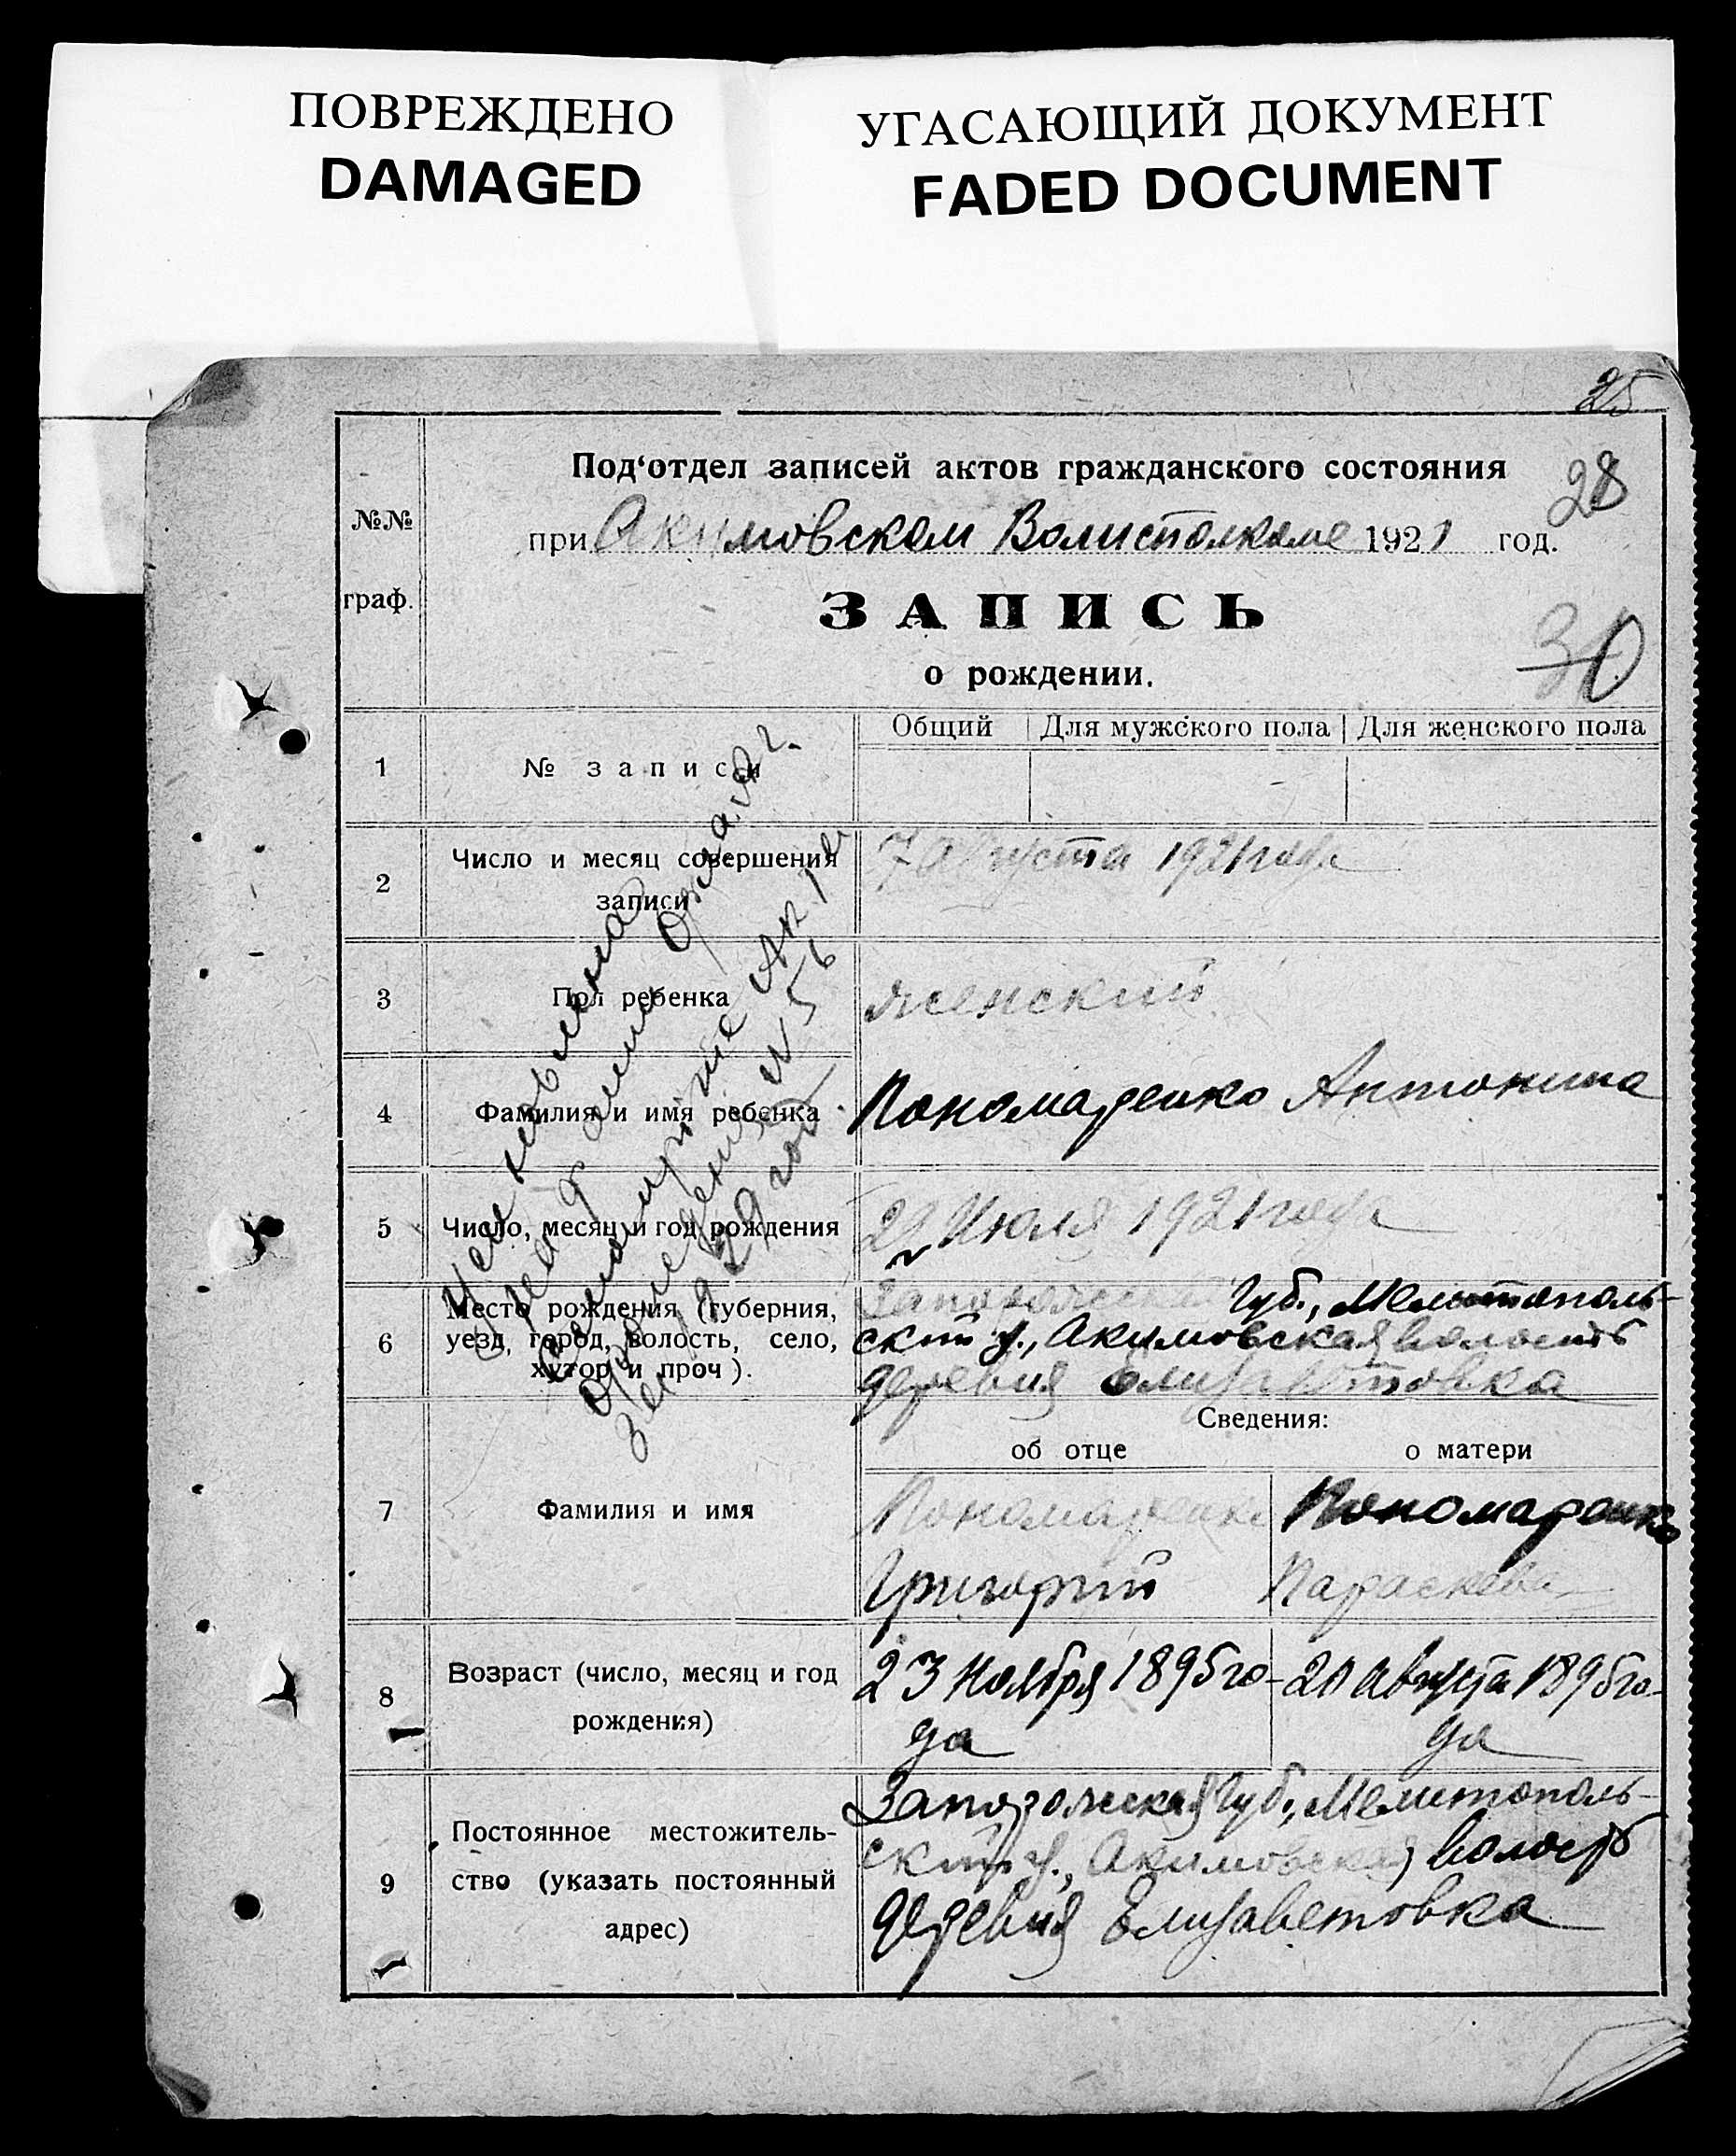 ПОВРЕЖДЕНО
DAMAGED
УГАСАЮЩИЙ ДОКУМЕНТ
FADED DOCUMENT
25
28
30
№№
граф.
Под‘отдел записей актов гражданского состояния
при Акимовском Волисполкоме 1921 год.
ЗАПИСЬ
о рождении.
Общий Для мужского пола Для женского пола
1 № записи
2 Число и месяц совершения
записи
7 Августа 1921 года
3 Пол ребенка
женский
4 Фамилия и имя ребенка
Пономаренко Антонина
5 Число, месяц и год рождения
22 Июля 1921 года
6 Место рождения (губерния,
уезд, город, волость, село,
хутор и проч).
Запорожская Губ., Мелитополь-
ский у., Акимовская волость
деревня Елизаветовка
Сведения:
об отце о матери
7 Фамилия и имя
Пономаренко Пономаренко
Григорий Параскева
8 Возраст (число, месяц и год
рождения)
23 Ноября 1895 го- 20 Августа 1895 го-
да да
9 Постоянное местожитель-
ство (указать постоянный
адрес)
Запорожская Губ., Мелитополь-
ский у., Акимовская волость
деревня Елизаветовка
фамилия
Смотрите Акт о
№ 56
1929 год